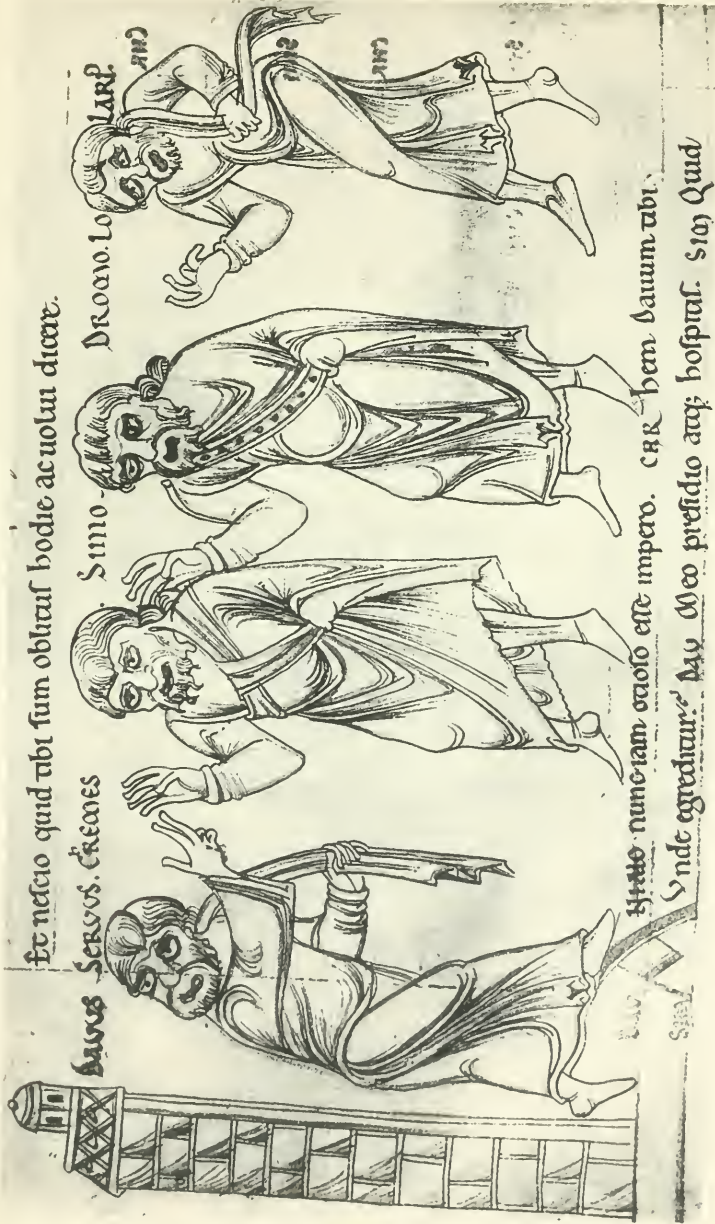 Et neſcio quid tibi ſum oblituſ hodie ac uolui dicere.
DAVUS SERVVS. CREMES SIMO - DROMO. LO
nunc iam otioſo eſſe impero. CHR hem dauum tibi.
Vnde egreditur? DAV Meo preſidio atq; hoſpitiſ. SIM Quid